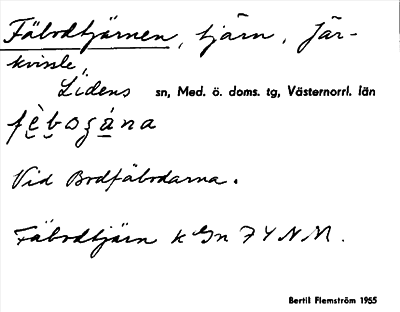 Fäbodtjärnen, tjärn, Jär-
kvissle,
Lidens sn, Med. ö. doms. tg, Västernorrl. län
Vid Bodfäbodarna.
Fäbodtjärn k Gn 7 Y N M.
Bertil Flemström 1955